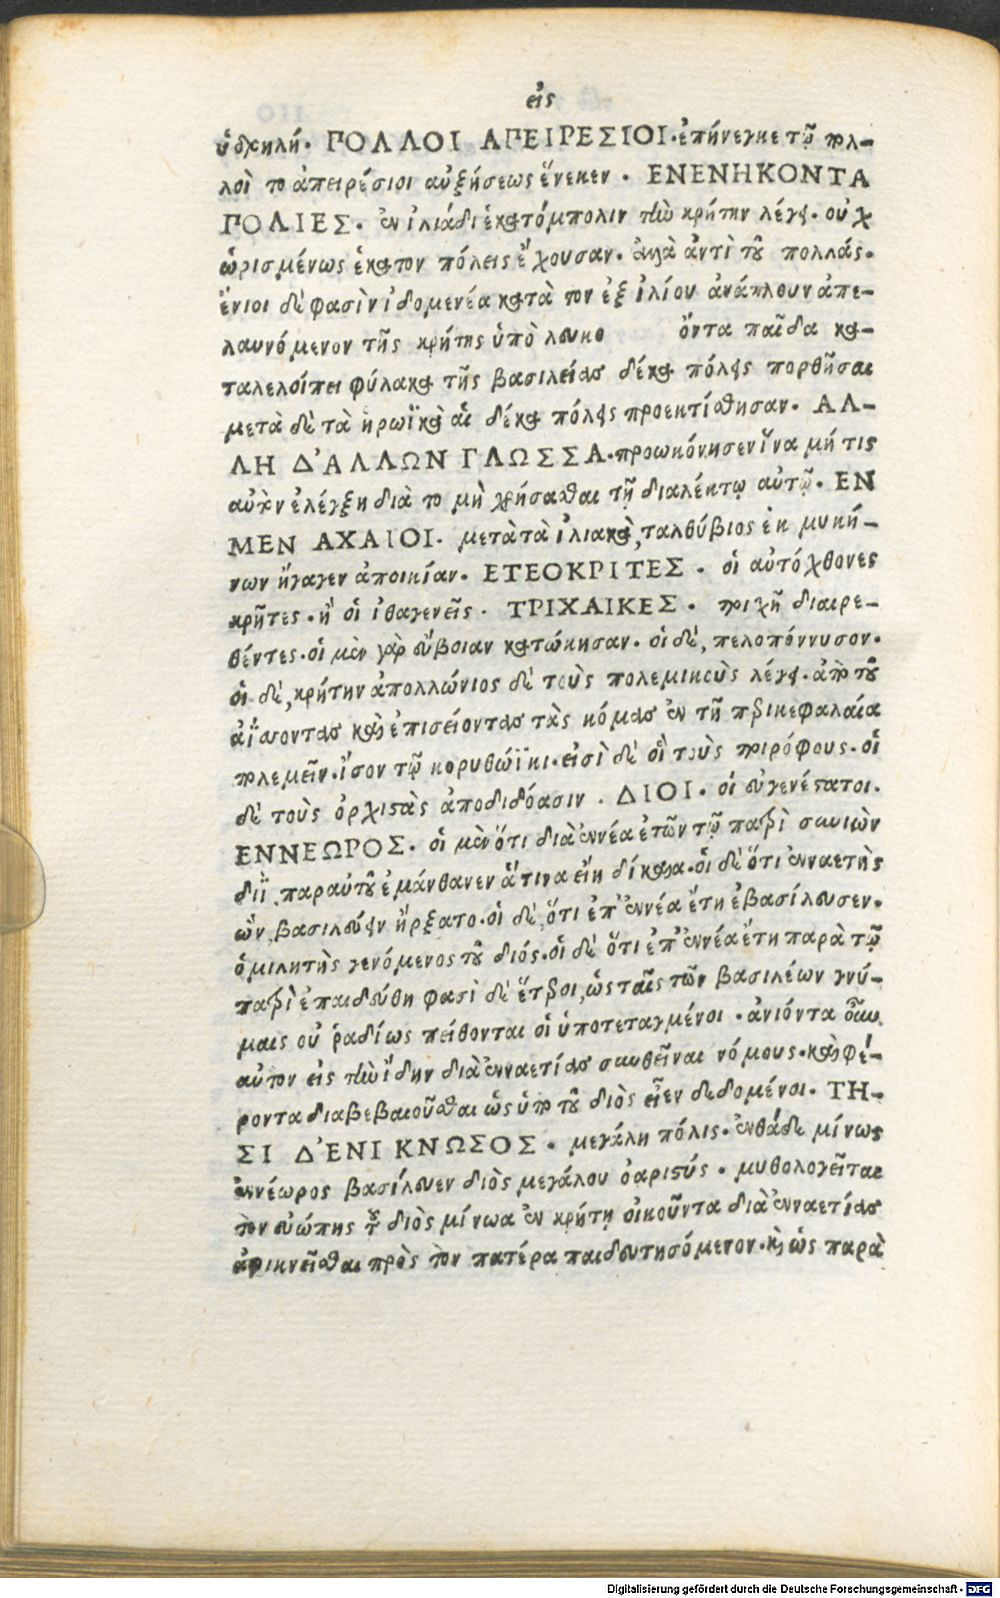 εἰς
ὑψηλή. ΠΟΛΛΟΙ ΑΠΕΙΡΕΣΙΟΙ. ἐπήνεγκε τῷ πολ-
λοὶ το ἀπειρέσιοι αὐξήσεως ἕνεκεν. ΕΝΕΝΗΚΟΝΤΑ
ΠΟΛΙΕΣ. ἐν ἰλιάδι ἑκατόμπολιν τὴν κρήτην λέγει. οὐχ
ὡρισμένως ἑκατον πόλεις ἔχουσαν. ἀλλὰ ἀντὶ τοῦ πολλάς.
ἔνιοι δέ φασὶν ἰδομενέα κατὰ τον ἐξ ἰλίου ἀνάπλουν ἀπε-
λαυνόμενον τῆς κρήτης ὑπὸ λευκο όντα παῖδα κα-
ταλελοίπει φύλακα τῆς βασιλείας δέκα πόλεις πορθῆσαι
μετὰ δὲ τὰ ἡρωϊκὰ αἱ δέκα πόλεις προεκτίσθησαν. ΑΛ-
ΛΗ Δ'ΑΛΛΩΝ ΓΛΩΣΣΑ. προωκόνησεν ἵνα μή τις
αὐτὸν ἐλέγξη διὰ το μὴ χρήσασθαι τῇ διαλέκτῳ αὐτῷ. ΕΝ
ΜΕΝ ΑΧΑΙΟΙ. μετὰ τὰ ἰλιακὰ, ταλθύβιος ἐκ μυκή-
νων ἤγαγεν ἀποικίαν. ΕΤΕΟΚΡΙΤΕΣ. οἱ αὐτόχθονες
κρῆτες. ἢ οἱ ἰθαγενεῖς. ΤΡΙΧΑΙΚΕΣ. τριχῇ διαιρε-
θέντες. οἱ μὲν γὰρ εὔβοιαν κατώκησαν. οἱ δέ, πελοπόννυσον.
οἱ δέ, κρήτην ἀπολλώνιος δὲ τοὺς πολεμικοὺς λέγει. ἀπὸ τοῦ
ἀΐσσοντας καὶ ἐπισείοντας τὰς κόμας ἐν τῇ περικεφαλαία
πολεμεῖν. ἴσον τῷ κορυθώϊκι. εἰσὶ δὲ οἳ τοὺς τριρόφους. οἱ
δὲ τοὺς ὀρχιστὰς ἀποδιδόασιν. ΔΙΟΙ. οἱ εὐγενέστατοι.
ΕΝΝΕΩΡΟΣ. οἱ μὲν ὅτι διὰ ἐννέα ἐτῶν τῷ πατρὶ συνιὼν
διῒ παραὐτοῦ ἐμάνθανεν ἅτινα εἴη δίκαια. οἱ δὲ ὅτι ἐνναετὴς
ὢν, βασιλεύειν ἤρξατο. οἱ δὲ, ὅτι ἐπ' ἐννέα ἔτη ἐβασίλευσεν.
ὁμιλητὴς γενόμενος τοῦ διός. οἱ δὲ ὅτι ἐπ' ἐννέα ἔτη παρὰ τῷ
πατρὶ ἐπαιδεύθη φασὶ δὲ ἕτεροι, ὡς ταῖς τῶν βασιλέων γνώ-
μαις οὐ ῥαδίως πείθονται οἱ ὑποτεταγμένοι. ἀνιόντα οὖν
αὐτον εἰς τὴν ἴδην διὰ ἐνναετίας συνθεῖναι νόμους. καὶ φέ-
ροντα διαβεβαιοῦσθαι ὡς ὑπὸ τοῦ διὸς εἶεν δεδομένοι. ΤΗ-
ΣΙ Δ'ΕΝΙ ΚΝΩΣΟΣ. μεγάλη πόλις. ἐνθάδε μίνως
ἐννέωρος βασίλευεν διὸς μεγάλου ὀαριστύς. μυθολογεῖται
τὸν εὐώπης τοῦ διὸς μίνωα ἐν κρήτη οἰκοῦντα διὰ ἐνναετίας
ἀφικνεῖσθαι πρὸς τὸν πατέρα παιδευτησόμενον. καὶ ὡς παρὰ
Digitalisierung gefördert durch die Deutsche Forschungsgemeinschaft - DFG